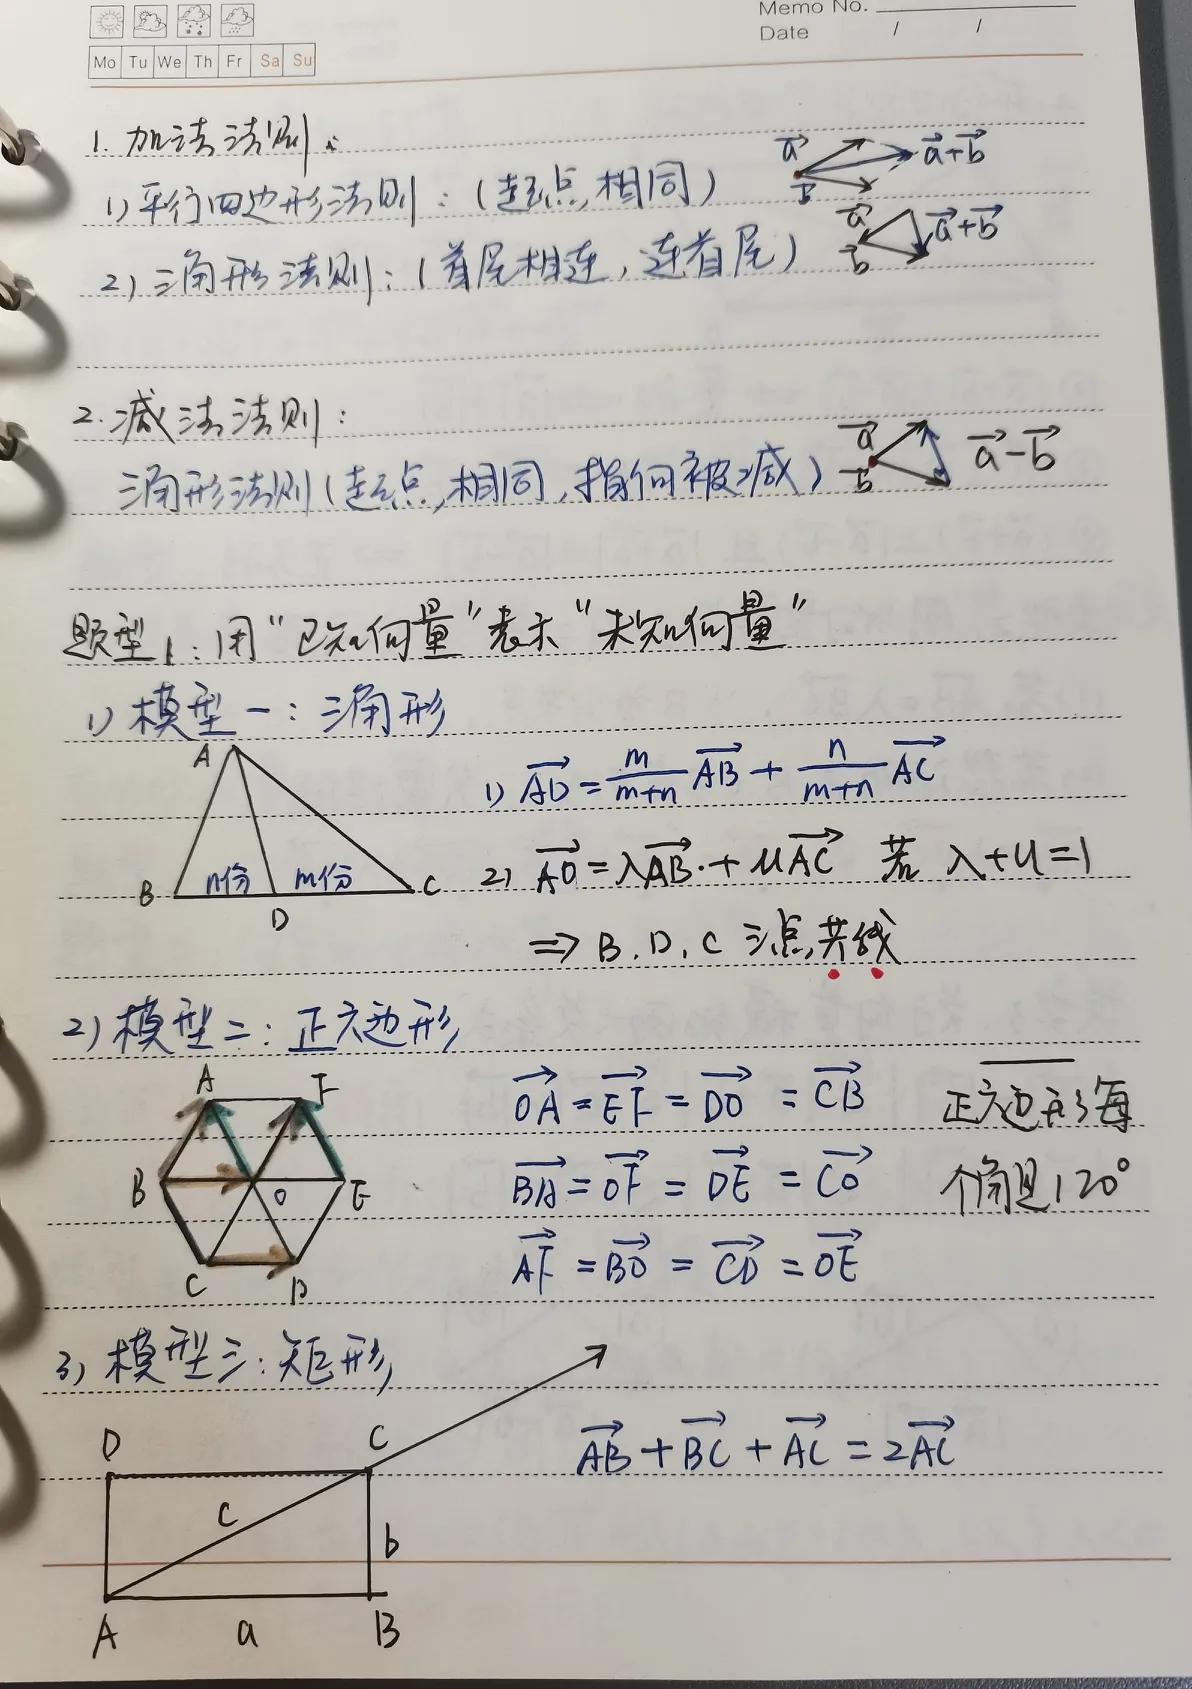 Memo No.
Date / /
Mo Tu We Th Fr Sa Su
1. 加法法则:
1) 平行四边形法则:(起点相同)
a b a+b
2) 三角形法则:(首尾相连,连首尾)
a b a+b
2. 减法法则:
三角形法则(起点相同,指向被减)
a b a-b
题型1:用"已知向量"表示"未知向量"
1) 模型一:三角形
A
B n份 D m份 C
1) AD = m/(m+n) AB + n/(m+n) AC
2) AD = λAB + μAC 若 λ+μ=1
⇒ B, D, C 三点共线
2) 模型二:正六边形
A F
B O E
C D
OA = EF = DO = CB
BA = OF = DE = CO
AF = BO = CD = OE
正六边形每
个角是120°
3) 模型三:矩形
D C
c b
A a B
AB + BC + AC = 2AC